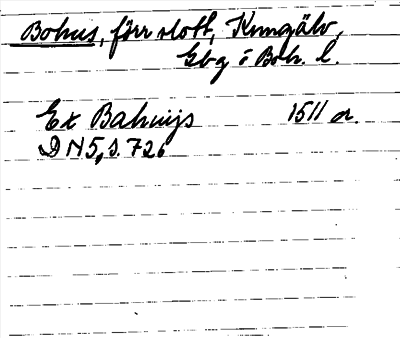 Bohus, förr slott, Kungälv,
Gbg o Boh. l.
Ex Bahuijs 1511 or.
DN 5, s. 726